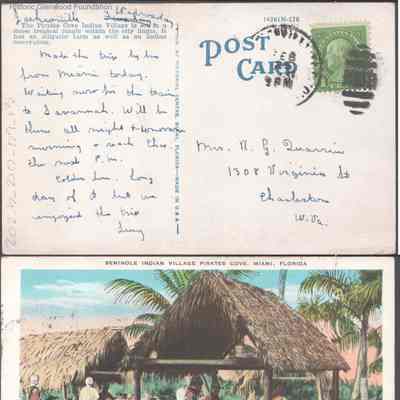 Historic Glenwood Foundation
Jacksonville Wednesday
The Pirates Cove Indian Village is in a
dense tropical jungle within the city limits. It
has an alligator farm as well as an Indian
Made the trip by bus
from Miami today.
Waiting now for the train
to Savannah. Will be
there all night + tomorrow
morning + reach Chas.
the next P.M.
Colder here. Long
day of it but we
enjoyed the trip
Lucy
2024.210.017.13
142613N-C7B
POST
CARD
FEB
PM
Mrs. W. G. Quarrier
1308 Virginia St
Charleston
W. Va.
SEMINOLE INDIAN VILLAGE PIRATES COVE, MIAMI, FLORIDA